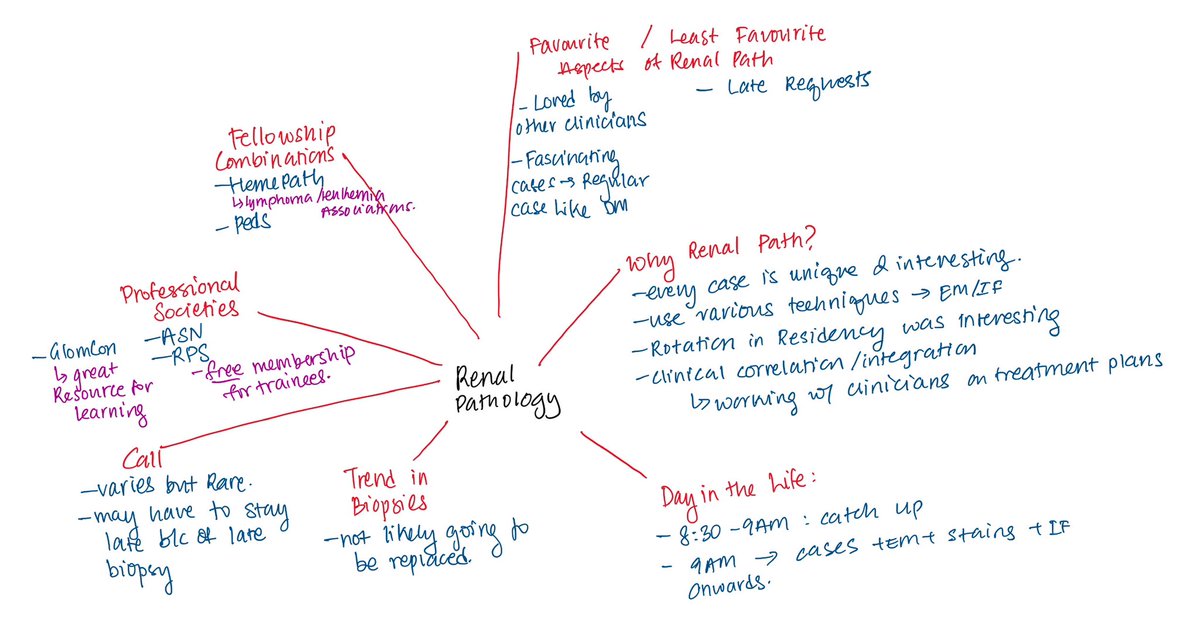 Favourite / Least Favourite
Aspects of Renal Path
- Loved by
other clinicians
- Fascinating
cases → Regular
case like DM
- Late Requests
Fellowship
Combinations
- HemePath
↳ lymphoma/leukemia
Associations.
- Peds
Why Renal Path?
- every case is unique & interesting.
- use various techniques → EM/IF
- Rotation in Residency was interesting
- clinical correlation/integration
↳ working w/ clinicians on treatment plans
Professional
Societies
- GlomCon
↳ great
Resource for
learning
- ASN
- RPS
- free membership
for trainees.
Renal
Pathology
Call
- varies but Rare.
- may have to stay
late b/c of late
biopsy
Trend in
Biopsies
- not likely going to
be replaced.
Day in the Life:
- 8:30 - 9AM : catch up
- 9AM → cases + EM + stains + IF
onwards.